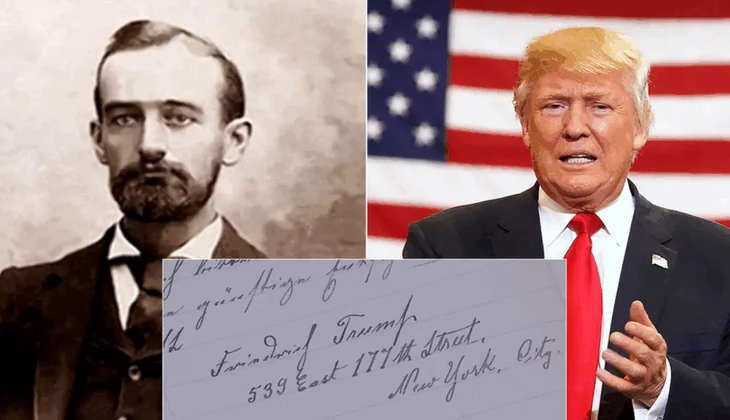 günstige
Friedrich Trump
539 East 177th Street,
New York, City.